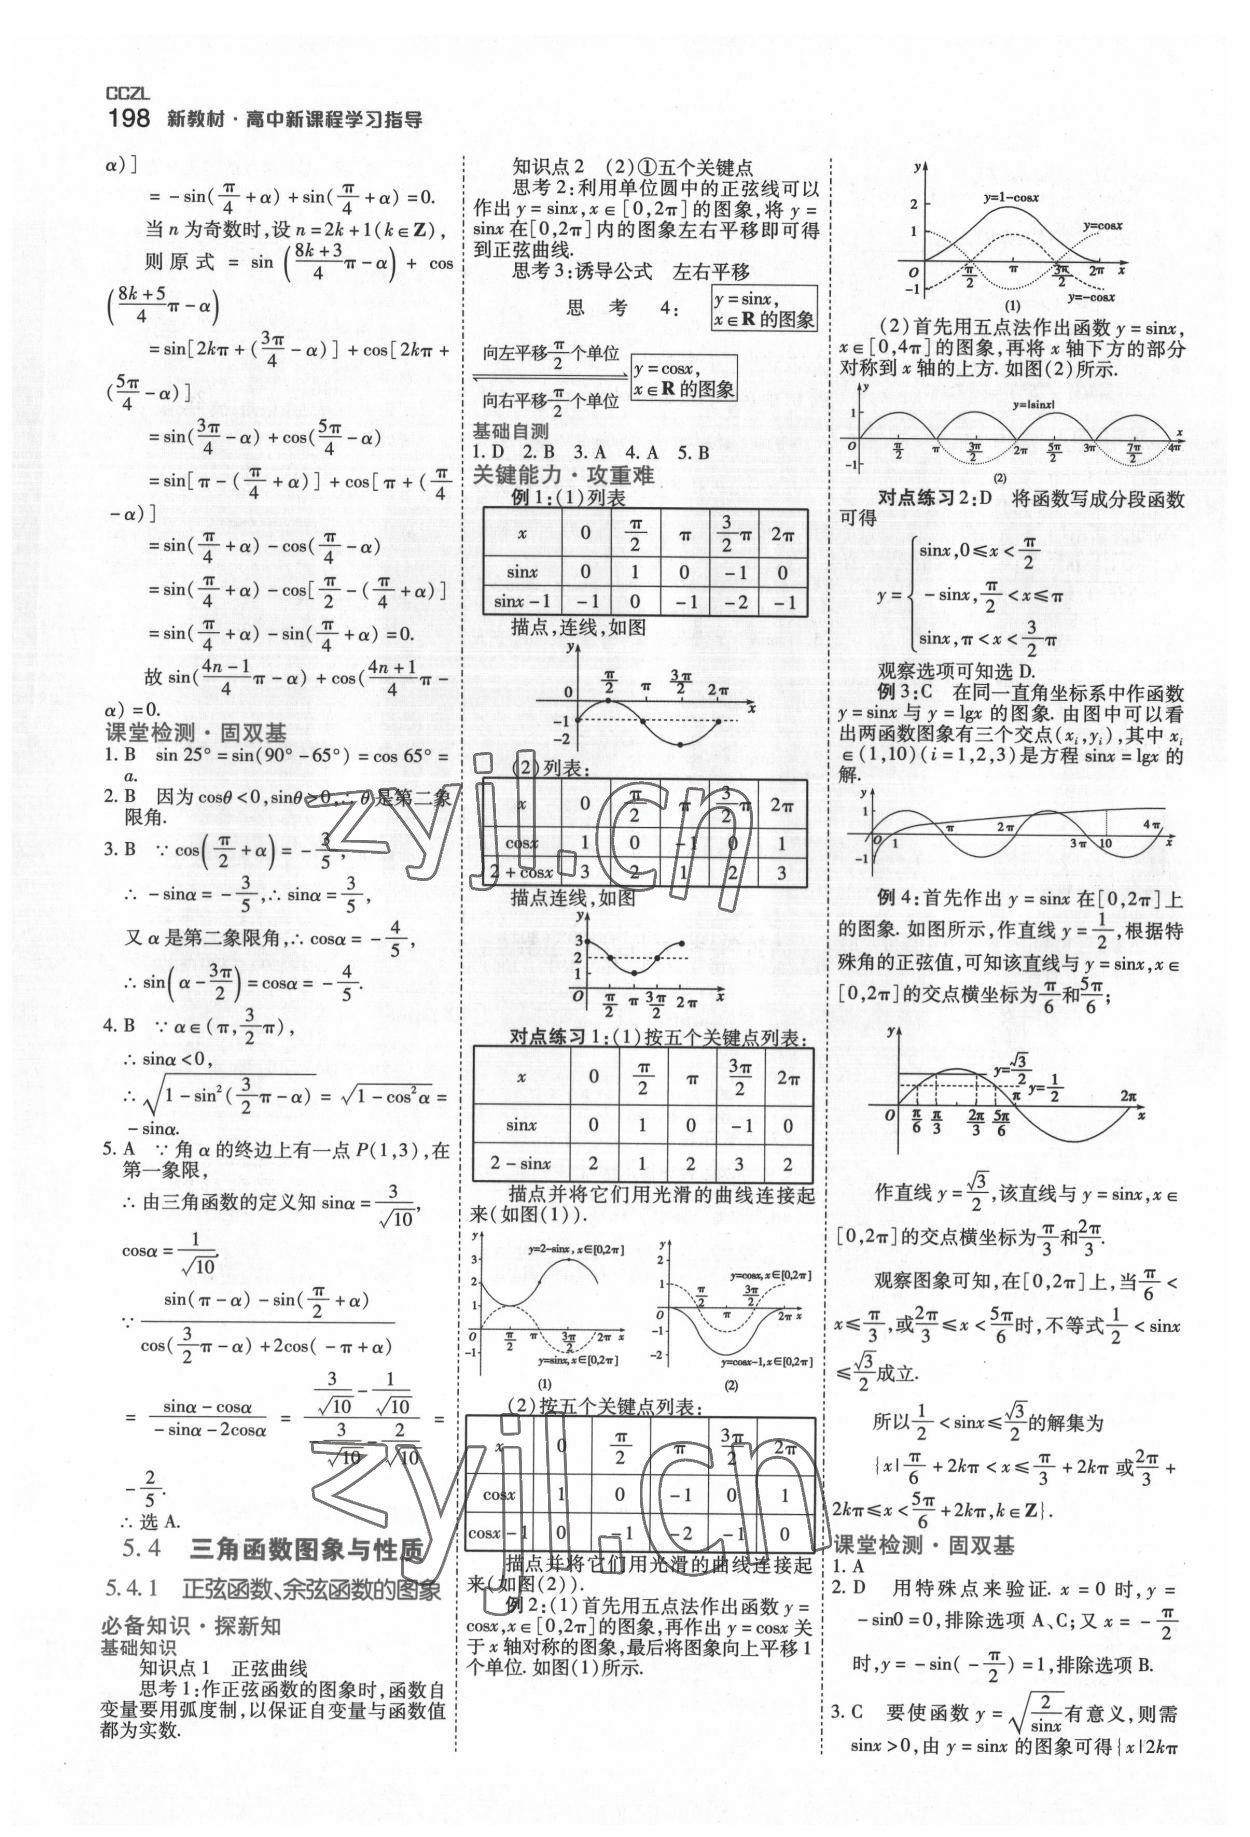 CCZL
198 新教材·高中新课程学习指导
α)]
= -sin(π/4 + α) + sin(π/4 + α) = 0.
当 n 为奇数时,设 n = 2k + 1(k∈Z),
则原式 = sin((8k+3)/4 π - α) + cos
((8k+5)/4 π - α)
= sin[2kπ + (3π/4 - α)] + cos[2kπ +
(5π/4 - α)]
= sin(3π/4 - α) + cos(5π/4 - α)
= sin[π - (π/4 + α)] + cos[π + (π/4
- α)]
= sin(π/4 + α) - cos(π/4 - α)
= sin(π/4 + α) - cos[π/2 - (π/4 + α)]
= sin(π/4 + α) - sin(π/4 + α) = 0.
故 sin((4n-1)/4 π - α) + cos((4n+1)/4 π -
α) = 0.
课堂检测·固双基
1. B sin 25° = sin(90° - 65°) = cos 65° =
a.
2. B 因为 cosθ < 0, sinθ > 0, ∴ θ 是第二象
限角.
3. B ∵ cos(π/2 + α) = -3/5,
∴ -sinα = -3/5, ∴ sinα = 3/5,
又 α 是第二象限角, ∴ cosα = -4/5,
∴ sin(α - 3π/2) = cosα = -4/5.
4. B ∵ α∈(π, 3/2 π),
∴ sinα < 0,
∴ √(1 - sin²(3/2 π - α)) = √(1 - cos²α) =
-sinα.
5. A ∵ 角 α 的终边上有一点 P(1,3),在
第一象限,
∴ 由三角函数的定义知 sinα = 3/√10,
cosα = 1/√10.
∵ (sin(π - α) - sin(π/2 + α))/(cos(3/2 π - α) + 2cos(-π + α))
= (sinα - cosα)/(-sinα - 2cosα) = (3/√10 - 1/√10)/(-3/√10 - 2/√10) =
-2/5.
∴ 选 A.
5.4 三角函数图象与性质
5.4.1 正弦函数、余弦函数的图象
必备知识·探新知
基础知识
知识点 1 正弦曲线
思考 1:作正弦函数的图象时,函数自
变量要用弧度制,以保证自变量与函数值
都为实数.
知识点 2 (2)①五个关键点
思考 2:利用单位圆中的正弦线可以
作出 y = sinx, x∈[0,2π]的图象,将 y =
sinx 在[0,2π]内的图象左右平移即可得
到正弦曲线.
思考 3:诱导公式 左右平移
思考 4: y = sinx,
x∈R 的图象
向左平移 π/2 个单位
y = cosx,
x∈R 的图象
向右平移 π/2 个单位
基础自测
1. D 2. B 3. A 4. A 5. B
关键能力·攻重难
例 1:(1)列表
x 0 π/2 π 3/2 π 2π
sinx 0 1 0 -1 0
sinx - 1 -1 0 -1 -2 -1
描点,连线,如图
y
0 π/2 π 3π/2 2π x
-1
-2
(2)列表:
x 0 π/2 π 3/2 π 2π
cosx 1 0 -1 0 1
2 + cosx 3 2 1 2 3
描点连线,如图
y
3
2
1
O π/2 π 3π/2 2π x
对点练习 1:(1)按五个关键点列表:
x 0 π/2 π 3π/2 2π
sinx 0 1 0 -1 0
2 - sinx 2 1 2 3 2
描点并将它们用光滑的曲线连接起
来(如图(1)).
y
y=2-sinx, x∈[0,2π]
3
2
1
O π/2 π 3π/2 2π x
-1
y=sinx, x∈[0,2π]
(1)
y
2
y=cosx, x∈[0,2π]
1
O π/2 π 3π/2 2π x
-1
-2
y=cosx-1, x∈[0,2π]
(2)
(2)按五个关键点列表:
x 0 π/2 π 3π/2 2π
cosx 1 0 -1 0 1
cosx - 1 0 -1 -2 -1 0
描点并将它们用光滑的曲线连接起
来(如图(2)).
例 2:(1)首先用五点法作出函数 y =
cosx, x∈[0,2π]的图象,再作出 y = cosx 关
于 x 轴对称的图象,最后将图象向上平移 1
个单位. 如图(1)所示.
y
2
y=1-cosx
1
y=cosx
O π/2 π 3π/2 2π x
-1
y=-cosx
(1)
(2)首先用五点法作出函数 y = sinx,
x∈[0,4π]的图象,再将 x 轴下方的部分
对称到 x 轴的上方. 如图(2)所示.
y
1
y=|sinx|
O π/2 π 3π/2 2π 5π/2 3π 7π/2 4π x
-1
(2)
对点练习 2:D 将函数写成分段函数
可得
y = { sinx, 0≤x<π/2
-sinx, π/2<x≤π
sinx, π<x<3/2 π
观察选项可知选 D.
例 3:C 在同一直角坐标系中作函数
y = sinx 与 y = lgx 的图象. 由图中可以看
出两函数图象有三个交点(xᵢ,yᵢ),其中 xᵢ
∈(1,10)(i = 1,2,3)是方程 sinx = lgx 的
解.
y
1
O 1 π 2π 3π 10 4π x
-1
例 4:首先作出 y = sinx 在[0,2π]上
的图象. 如图所示,作直线 y = 1/2,根据特
殊角的正弦值,可知该直线与 y = sinx, x∈
[0,2π]的交点横坐标为 π/6 和 5π/6;
y
y=√3/2
y=1/2
O π/6 π/3 2π/3 5π/6 π 2π x
作直线 y = √3/2,该直线与 y = sinx, x∈
[0,2π]的交点横坐标为 π/3 和 2π/3.
观察图象可知,在[0,2π]上,当 π/6 <
x≤π/3,或 2π/3≤x<5π/6 时,不等式 1/2 < sinx
≤√3/2 成立.
所以 1/2 < sinx≤√3/2 的解集为
{x|π/6 + 2kπ < x≤π/3 + 2kπ 或 2π/3 +
2kπ≤x<5π/6 + 2kπ, k∈Z}.
课堂检测·固双基
1. A
2. D 用特殊点来验证. x = 0 时, y =
-sin0 = 0,排除选项 A、C;又 x = -π/2
时, y = -sin(-π/2) = 1,排除选项 B.
3. C 要使函数 y = √(2/sinx) 有意义,则需
sinx > 0,由 y = sinx 的图象可得{x|2kπ
zyjl.cn
zyjl.cn